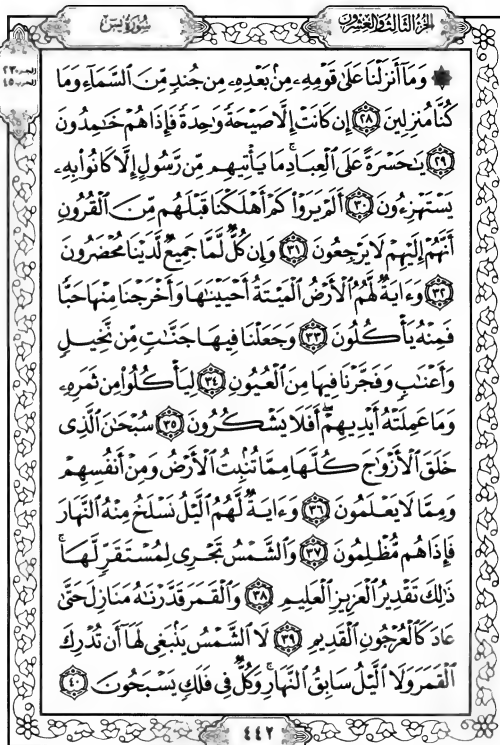 الجزء الثالث والعشرون
سورة يس
الجزء ٢٣
الحزب ٤٥
۞ وَمَآ أَنزَلْنَا عَلَىٰ قَوْمِهِۦ مِنۢ بَعْدِهِۦ مِن جُندٍ مِّنَ ٱلسَّمَآءِ وَمَا
كُنَّا مُنزِلِينَ ٢٨ إِن كَانَتْ إِلَّا صَيْحَةً وَٰحِدَةً فَإِذَا هُمْ خَٰمِدُونَ
٢٩ يَٰحَسْرَةً عَلَى ٱلْعِبَادِ ۚ مَا يَأْتِيهِم مِّن رَّسُولٍ إِلَّا كَانُوا۟ بِهِۦ
يَسْتَهْزِءُونَ ٣٠ أَلَمْ يَرَوْا۟ كَمْ أَهْلَكْنَا قَبْلَهُم مِّنَ ٱلْقُرُونِ
أَنَّهُمْ إِلَيْهِمْ لَا يَرْجِعُونَ ٣١ وَإِن كُلٌّ لَّمَّا جَمِيعٌ لَّدَيْنَا مُحْضَرُونَ
٣٢ وَءَايَةٌ لَّهُمُ ٱلْأَرْضُ ٱلْمَيْتَةُ أَحْيَيْنَٰهَا وَأَخْرَجْنَا مِنْهَا حَبًّا
فَمِنْهُ يَأْكُلُونَ ٣٣ وَجَعَلْنَا فِيهَا جَنَّٰتٍ مِّن نَّخِيلٍ
وَأَعْنَٰبٍ وَفَجَّرْنَا فِيهَا مِنَ ٱلْعُيُونِ ٣٤ لِيَأْكُلُوا۟ مِن ثَمَرِهِۦ
وَمَا عَمِلَتْهُ أَيْدِيهِمْ ۖ أَفَلَا يَشْكُرُونَ ٣٥ سُبْحَٰنَ ٱلَّذِى
خَلَقَ ٱلْأَزْوَٰجَ كُلَّهَا مِمَّا تُنۢبِتُ ٱلْأَرْضُ وَمِنْ أَنفُسِهِمْ
وَمِمَّا لَا يَعْلَمُونَ ٣٦ وَءَايَةٌ لَّهُمُ ٱلَّيْلُ نَسْلَخُ مِنْهُ ٱلنَّهَارَ
فَإِذَا هُم مُّظْلِمُونَ ٣٧ وَٱلشَّمْسُ تَجْرِى لِمُسْتَقَرٍّ لَّهَا ۚ
ذَٰلِكَ تَقْدِيرُ ٱلْعَزِيزِ ٱلْعَلِيمِ ٣٨ وَٱلْقَمَرَ قَدَّرْنَٰهُ مَنَازِلَ حَتَّىٰ
عَادَ كَٱلْعُرْجُونِ ٱلْقَدِيمِ ٣٩ لَا ٱلشَّمْسُ يَنۢبَغِى لَهَآ أَن تُدْرِكَ
ٱلْقَمَرَ وَلَا ٱلَّيْلُ سَابِقُ ٱلنَّهَارِ ۚ وَكُلٌّ فِى فَلَكٍ يَسْبَحُونَ ٤٠
٤٤٢